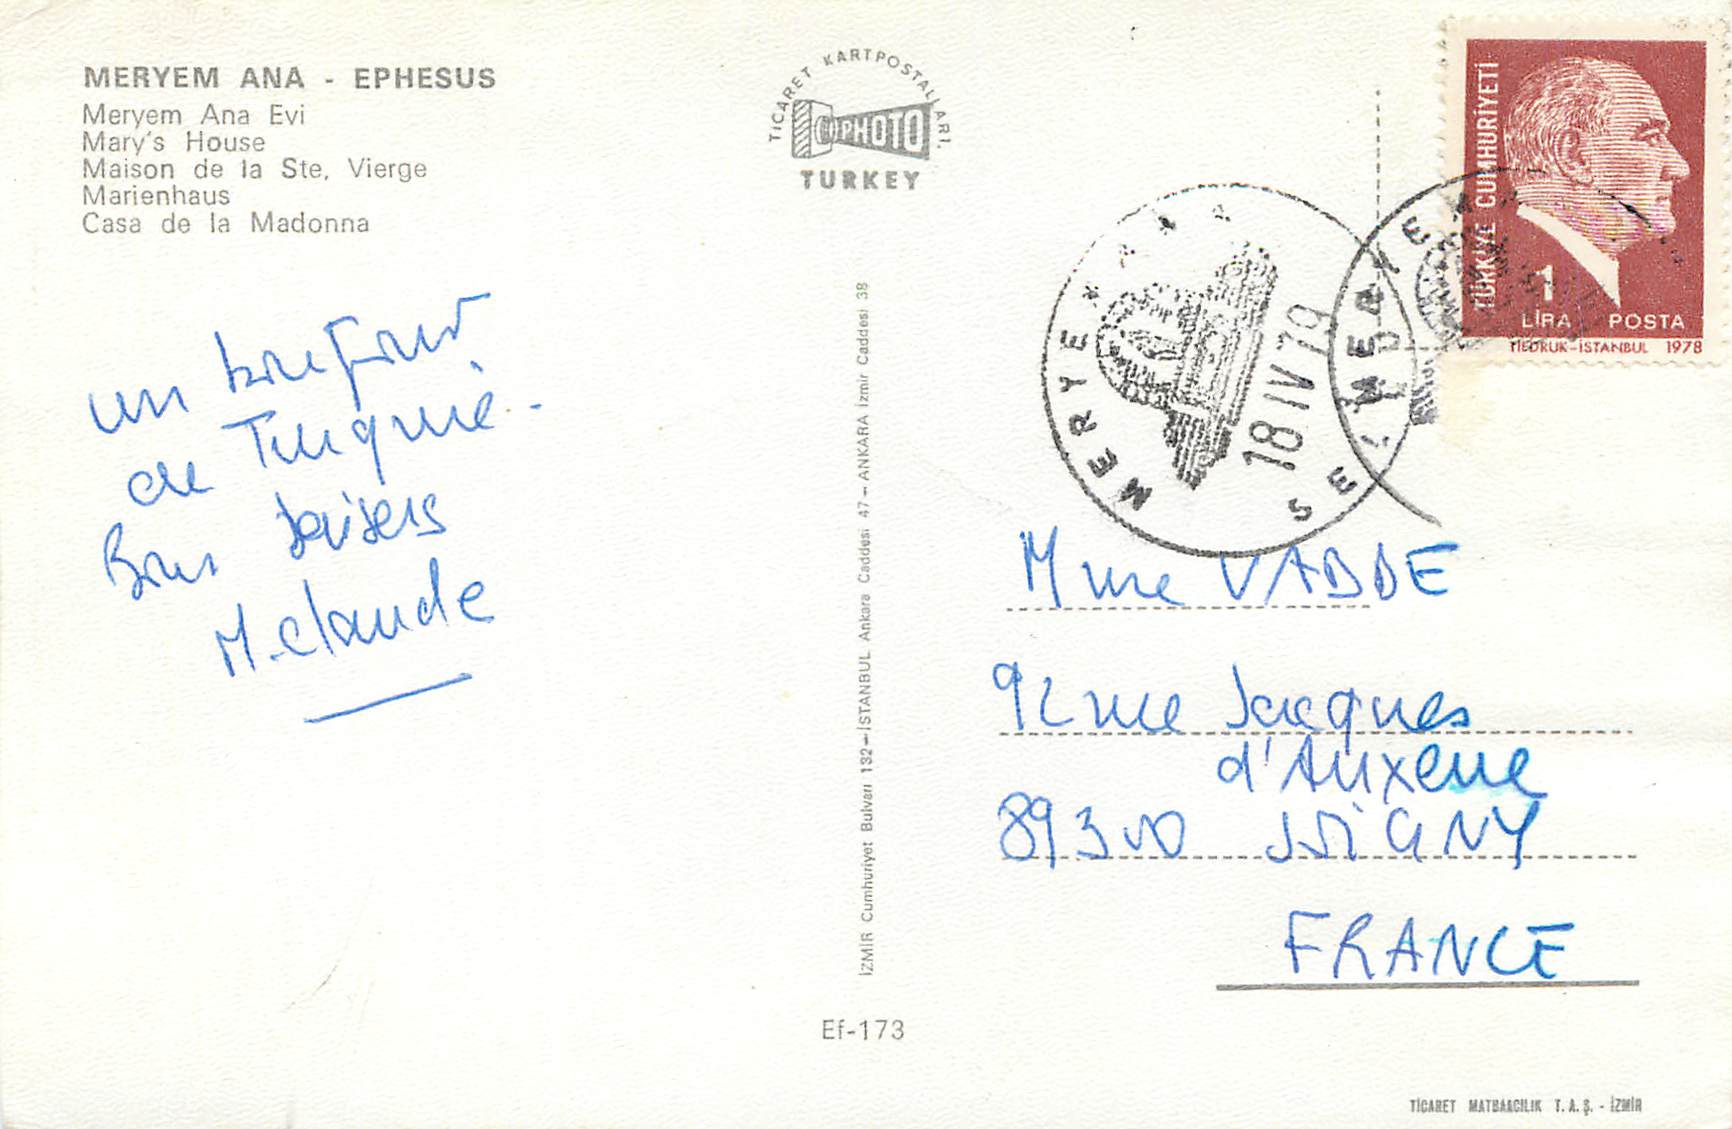 MERYEM ANA - EPHESUS
Meryem Ana Evi
Mary's House
Maison de la Ste, Vierge
Marienhaus
Casa de la Madonna
TİCARET KARTPOSTALLARI.
PHOTO
TURKEY
TÜRKİYE CUMHURİYETİ
1
LİRA POSTA
TİFDRUK-İSTANBUL 1978
MERYE
18 IV 79
SEL
un
de Turquie.
Bons baisers
M. Claude
İZMİR Cumhuriyet Bulvarı 132-İSTANBUL Ankara Caddesi 47-ANKARA İzmir Caddesi 38
Mme VABDE
92 rue Jacques
d'Auxerre
89300 JOIGNY
FRANCE
Ef-173
TİCARET MATBAACILIK T.A.Ş. - İZMİR